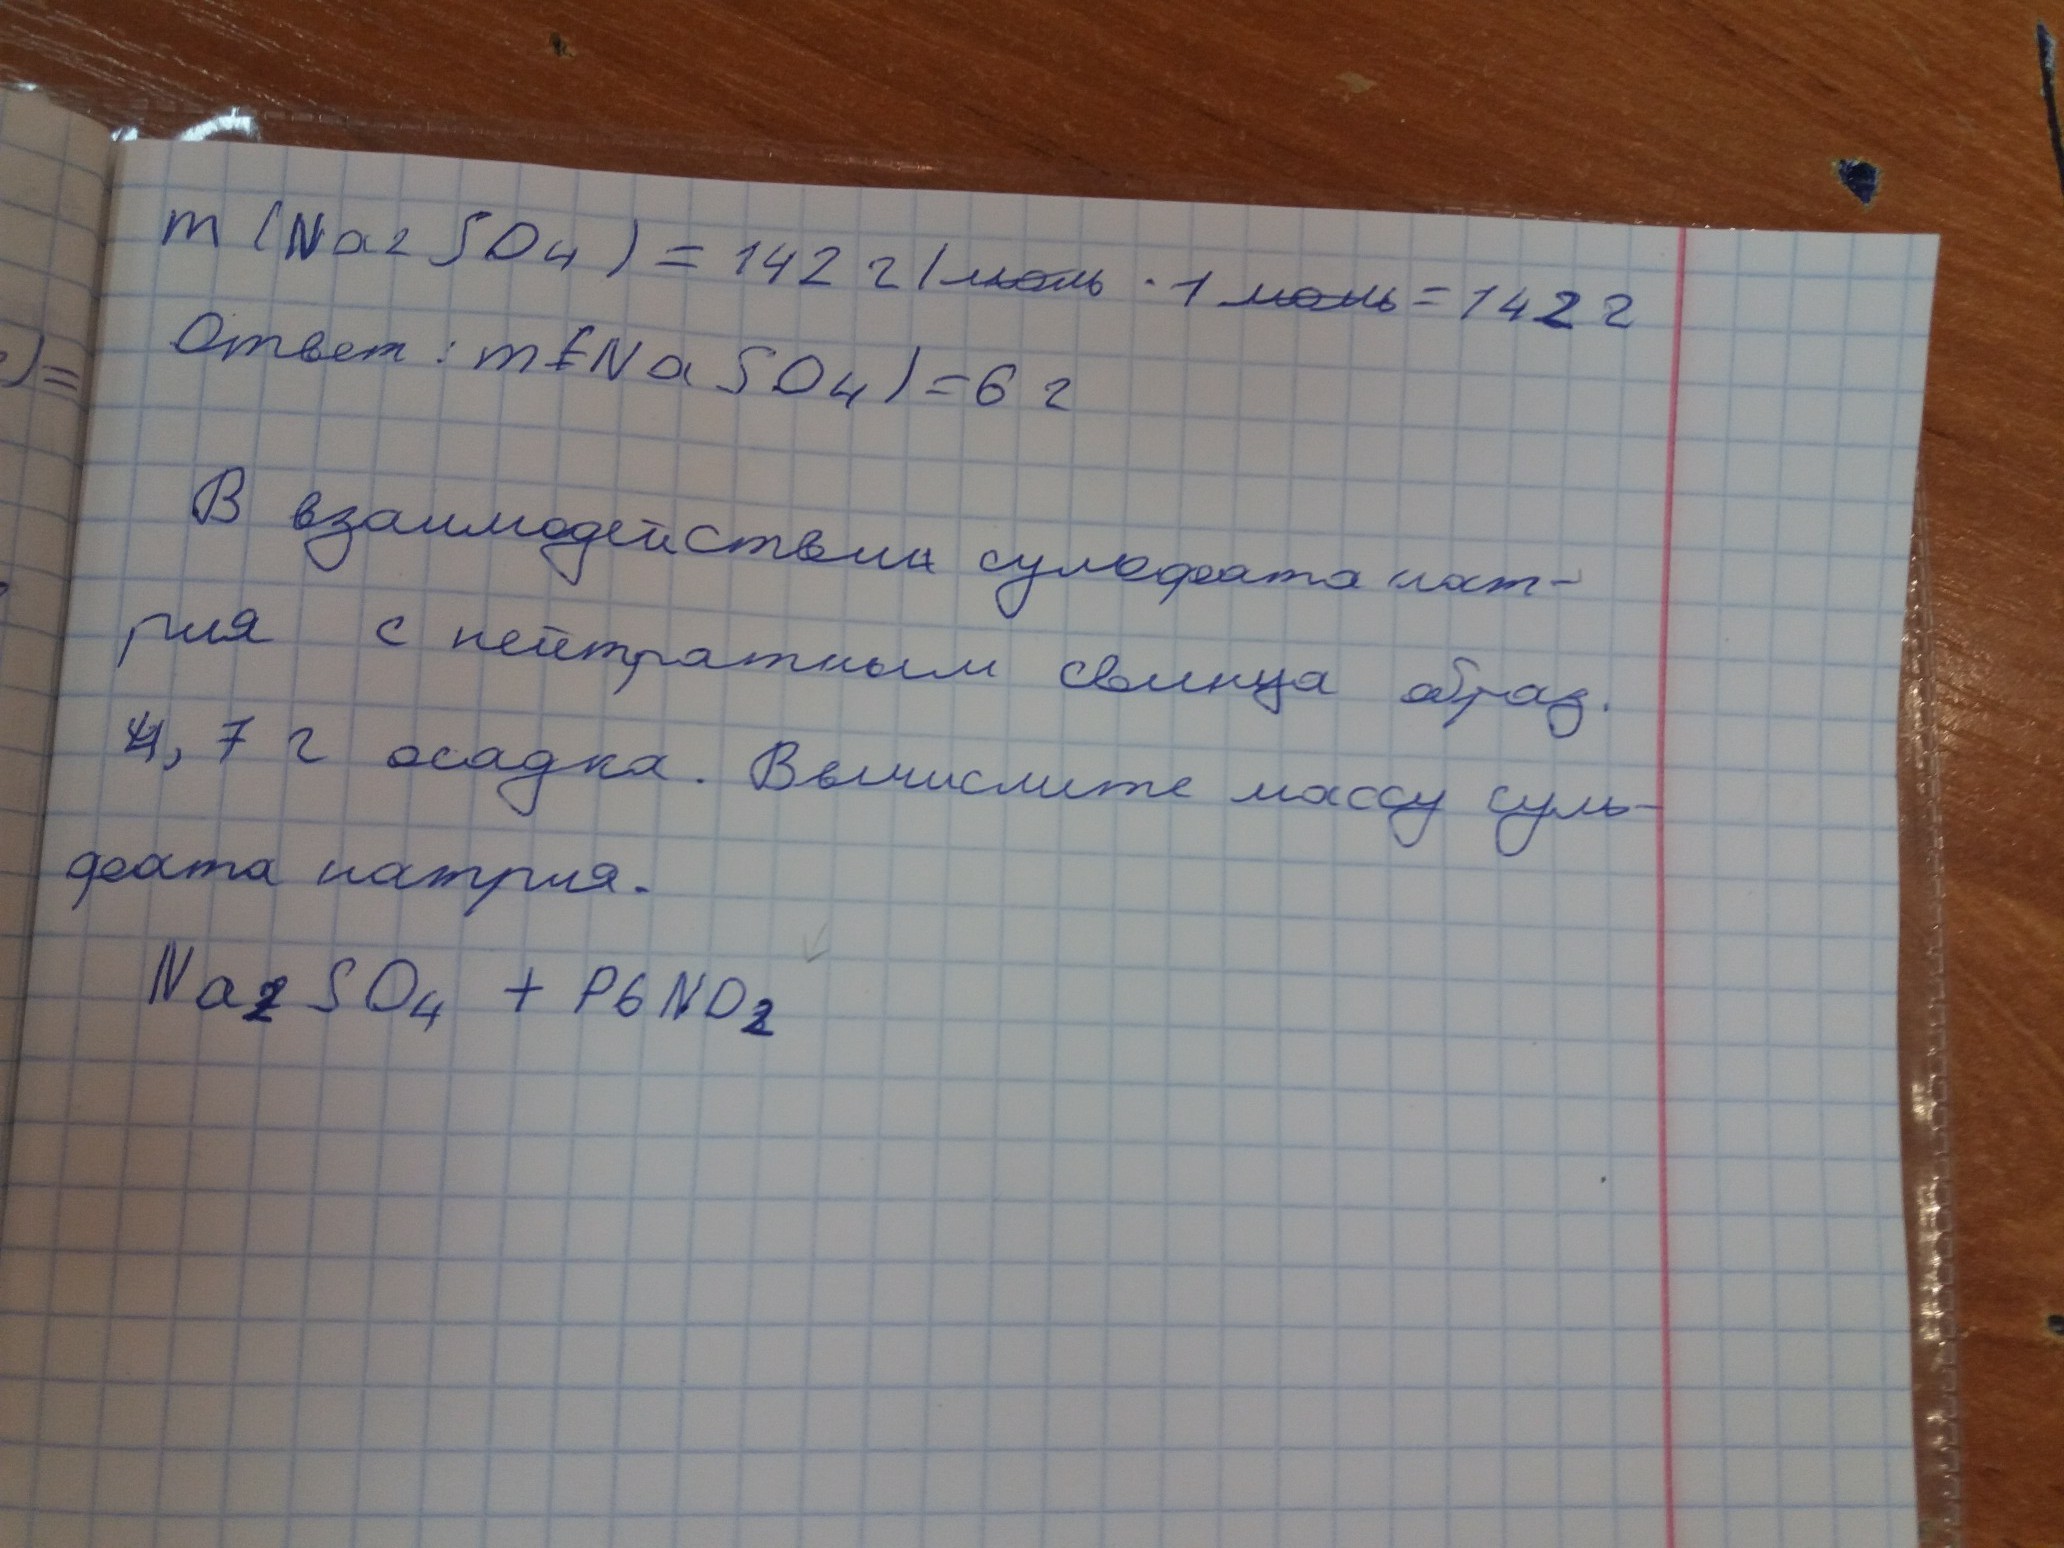 m (Na2SO4) = 142 г/моль · 1 моль = 142 г
)=
Ответ: m(NaSO4) = 6 г
В взаимодействии сульфата нат-
рия с нейтратным свинца образ.
4,7 г осадка. Вычислите массу суль-
фата натрия.
Na2SO4 + PbNO2